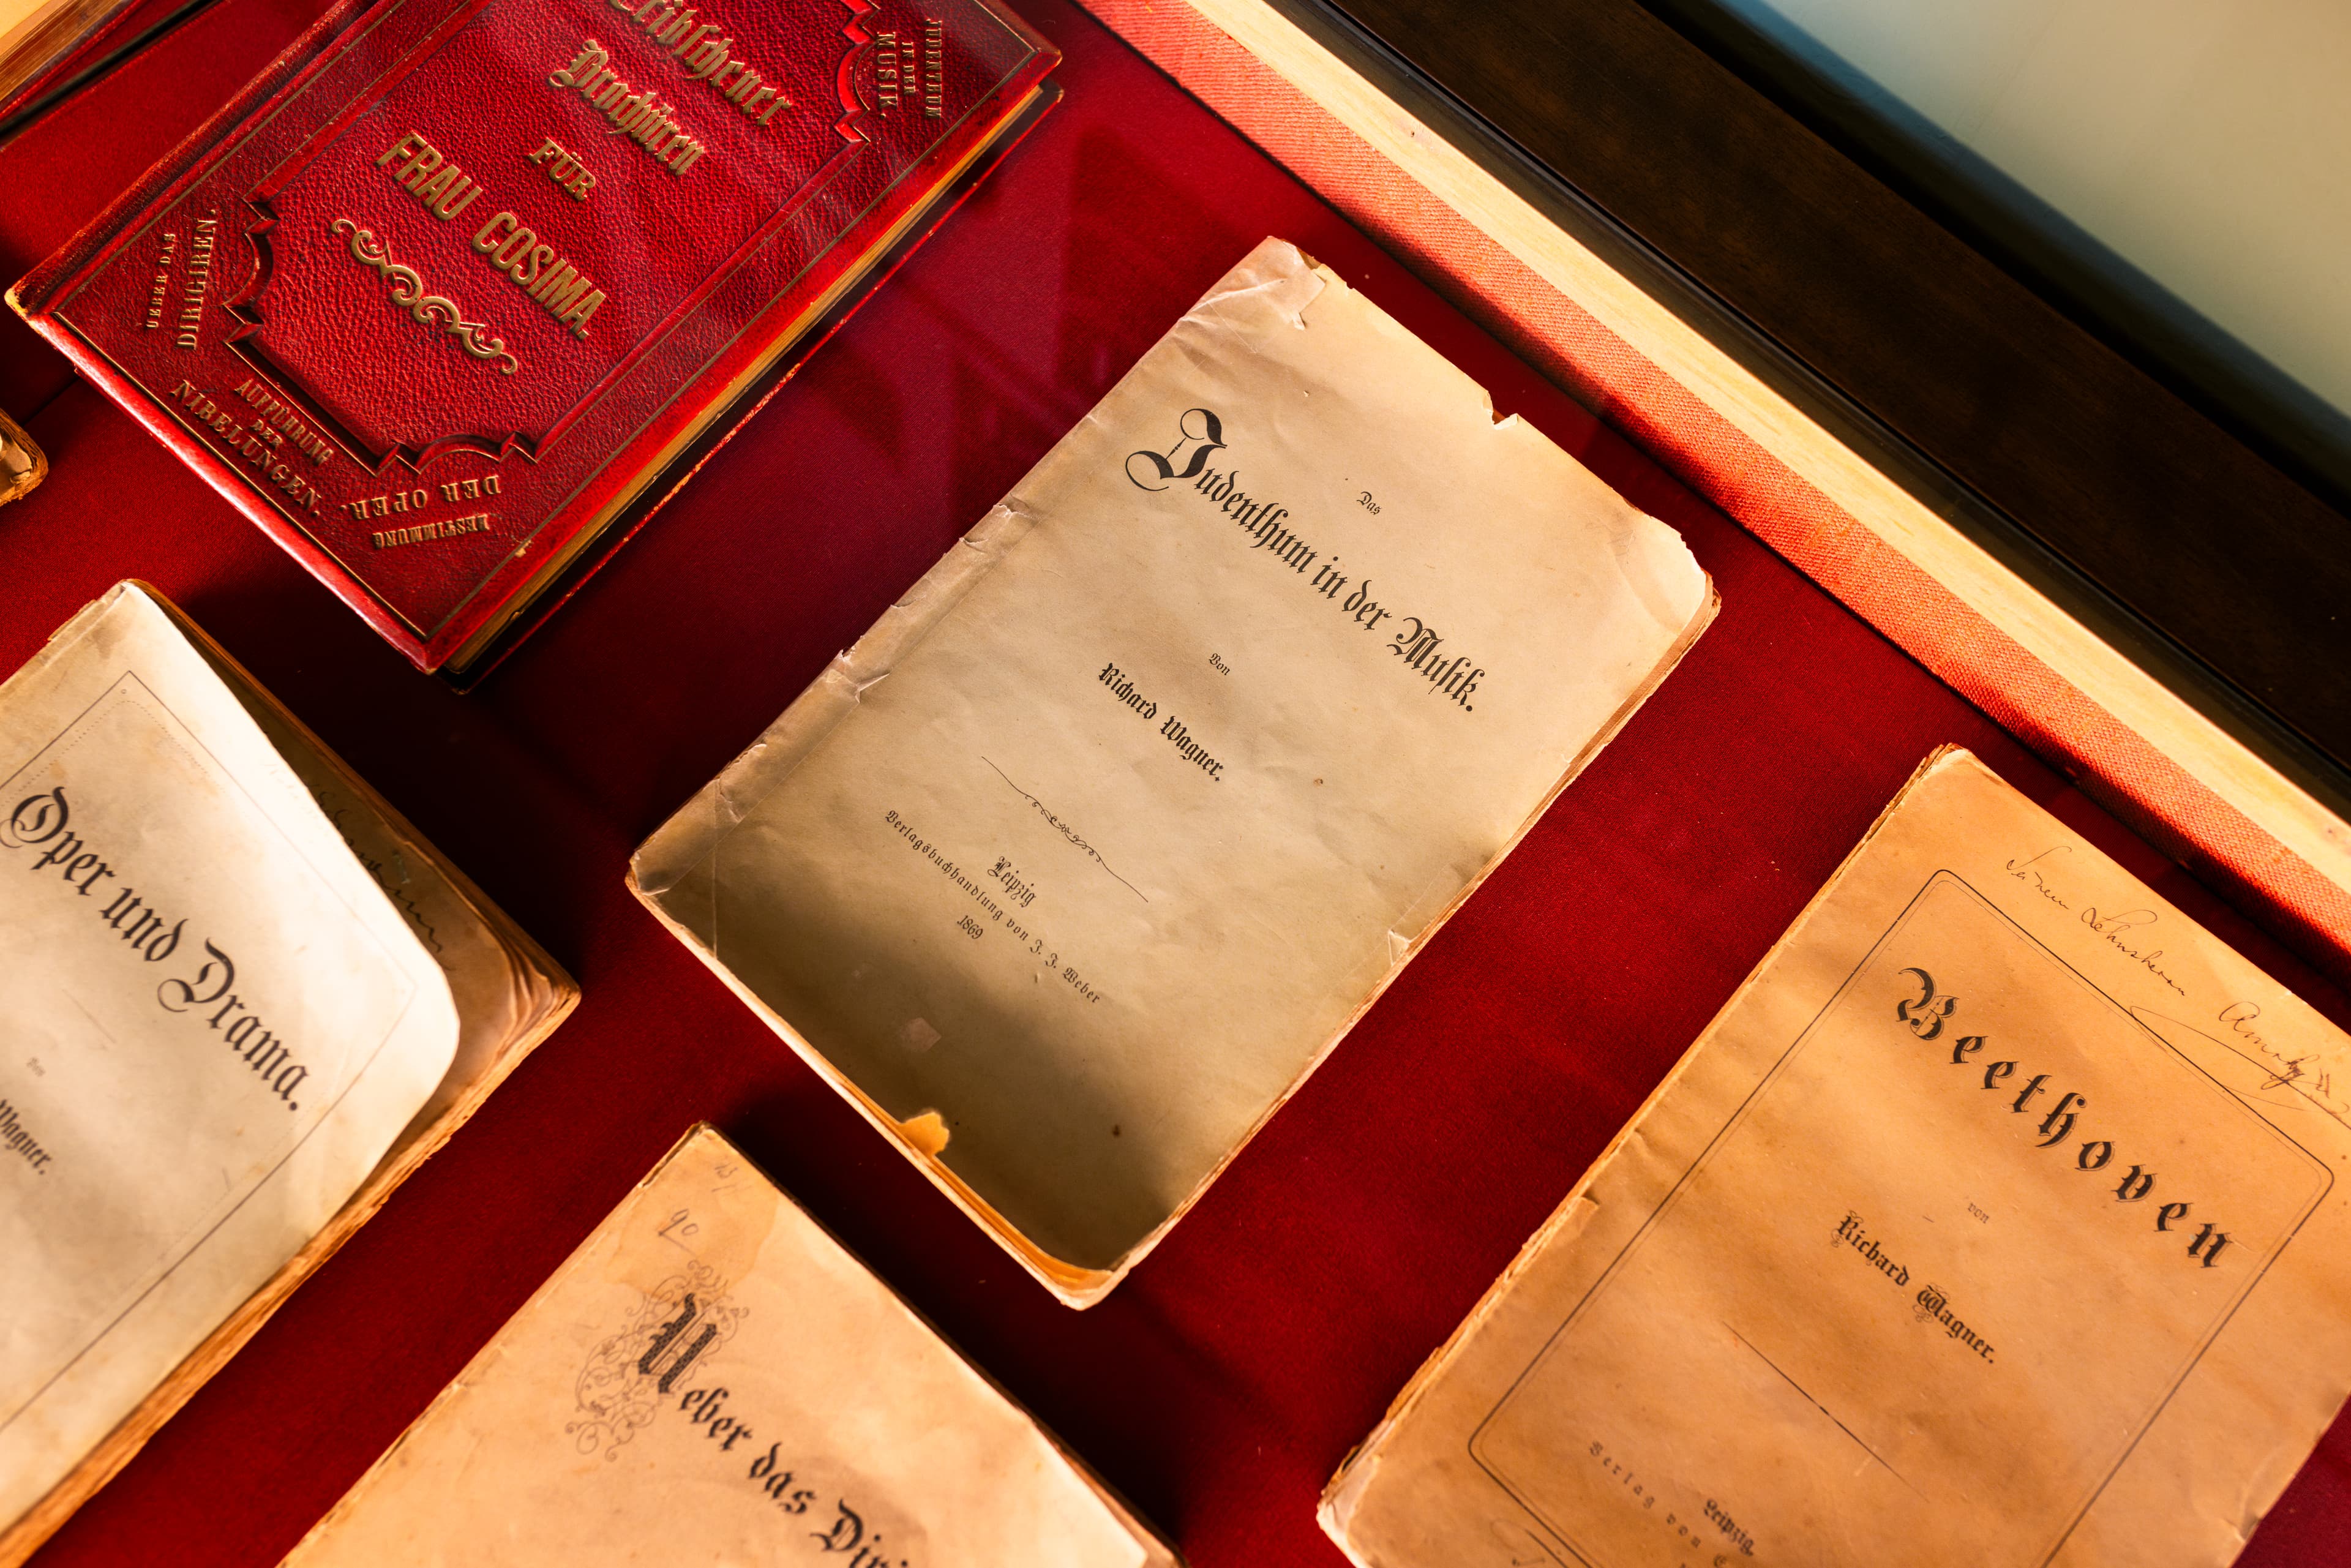 Tribschener
Brochüren
FÜR
FRAU COSIMA.
JUDENTHUM
IN DER
MUSIK.
UEBER DAS
DIRIGIREN.
AUFFÜHRUNG
DER
NIBELUNGEN.
BESTIMMUNG
DER OPER.
Das
Judenthum in der Musik.
Von
Richard Wagner.
Leipzig
Verlagsbuchhandlung von J. J. Weber
1869
Oper und Drama.
Von
Wagner.
90
Ueber das Diri
Seinem Lehnsherrn
Beethoven
von
Richard Wagner.
Leipzig.
Verlag von E